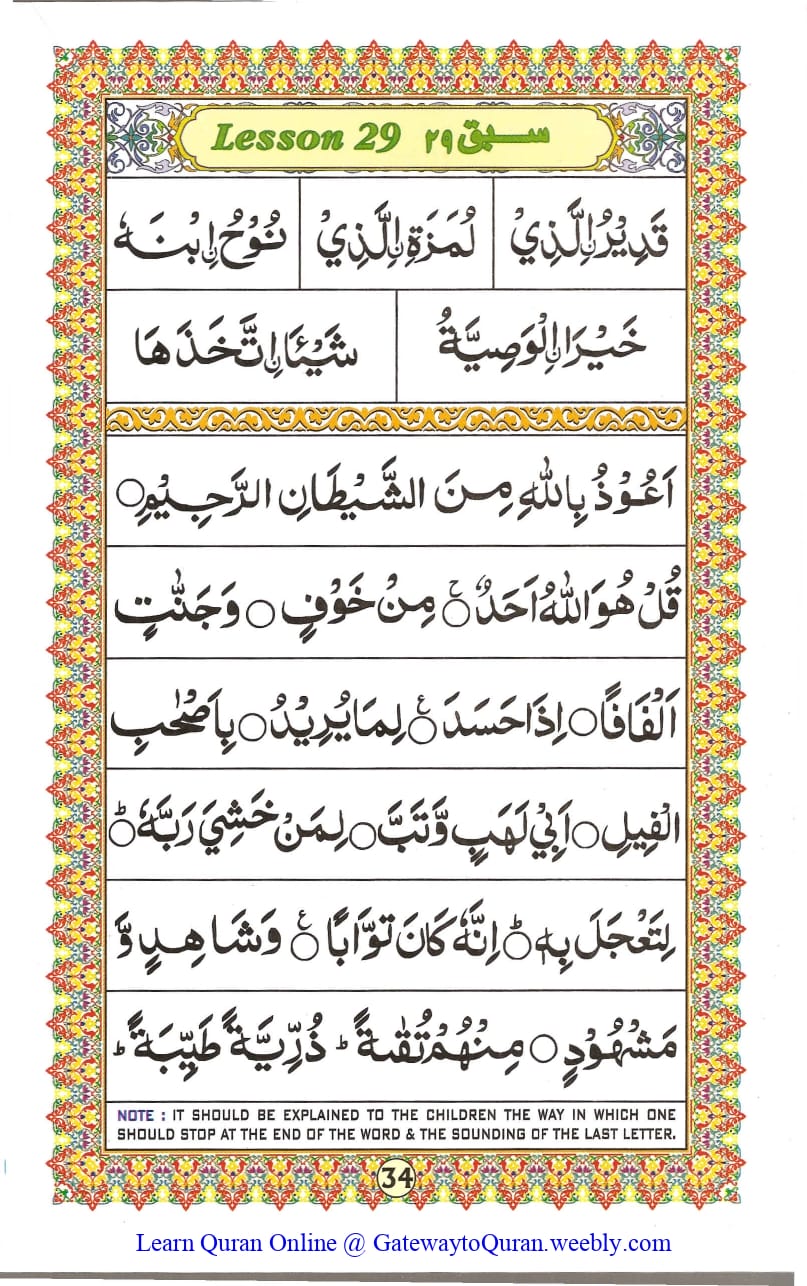 Lesson 29 سبق ۲۹
قَدِيْرُ ۨالَّذِيْ لُمَزَةِ ۨالَّذِيْ نُوْحُ ۨابْنَهٗ
خَيْرَا ۨالْوَصِيَّةُ شَيْئَا ۨاتَّخَذَهَا
اَعُوْذُ بِاللّٰهِ مِنَ الشَّيْطَانِ الرَّجِيْمِ ○
قُلْ هُوَ اللّٰهُ اَحَدٌ ○ۚ مِنْ خَوْفٍ ○ وَجَنّٰتٍ
اَلْفَافًا ○ اِذَا حَسَدَ ○ع لِمَا يُرِيْدُ ○ بِاَصْحٰبِ
الْفِيْلِ ○ اَبِيْ لَهَبٍ وَّتَبَّ ○ لِمَنْ خَشِيَ رَبَّهٗ ○ؕ
لِتَعْجَلَ بِهٖ ○ؕ اِنَّهٗ كَانَ تَوَّابًا ○ع وَشَاهِدٍ وَّ
مَشْهُوْدٍ ○ مِنْهُمْ تُقٰىةً ؕ ذُرِّيَّةً طَيِّبَةً ؕ
NOTE : IT SHOULD BE EXPLAINED TO THE CHILDREN THE WAY IN WHICH ONE
SHOULD STOP AT THE END OF THE WORD & THE SOUNDING OF THE LAST LETTER.
34
Learn Quran Online @ GatewaytoQuran.weebly.com